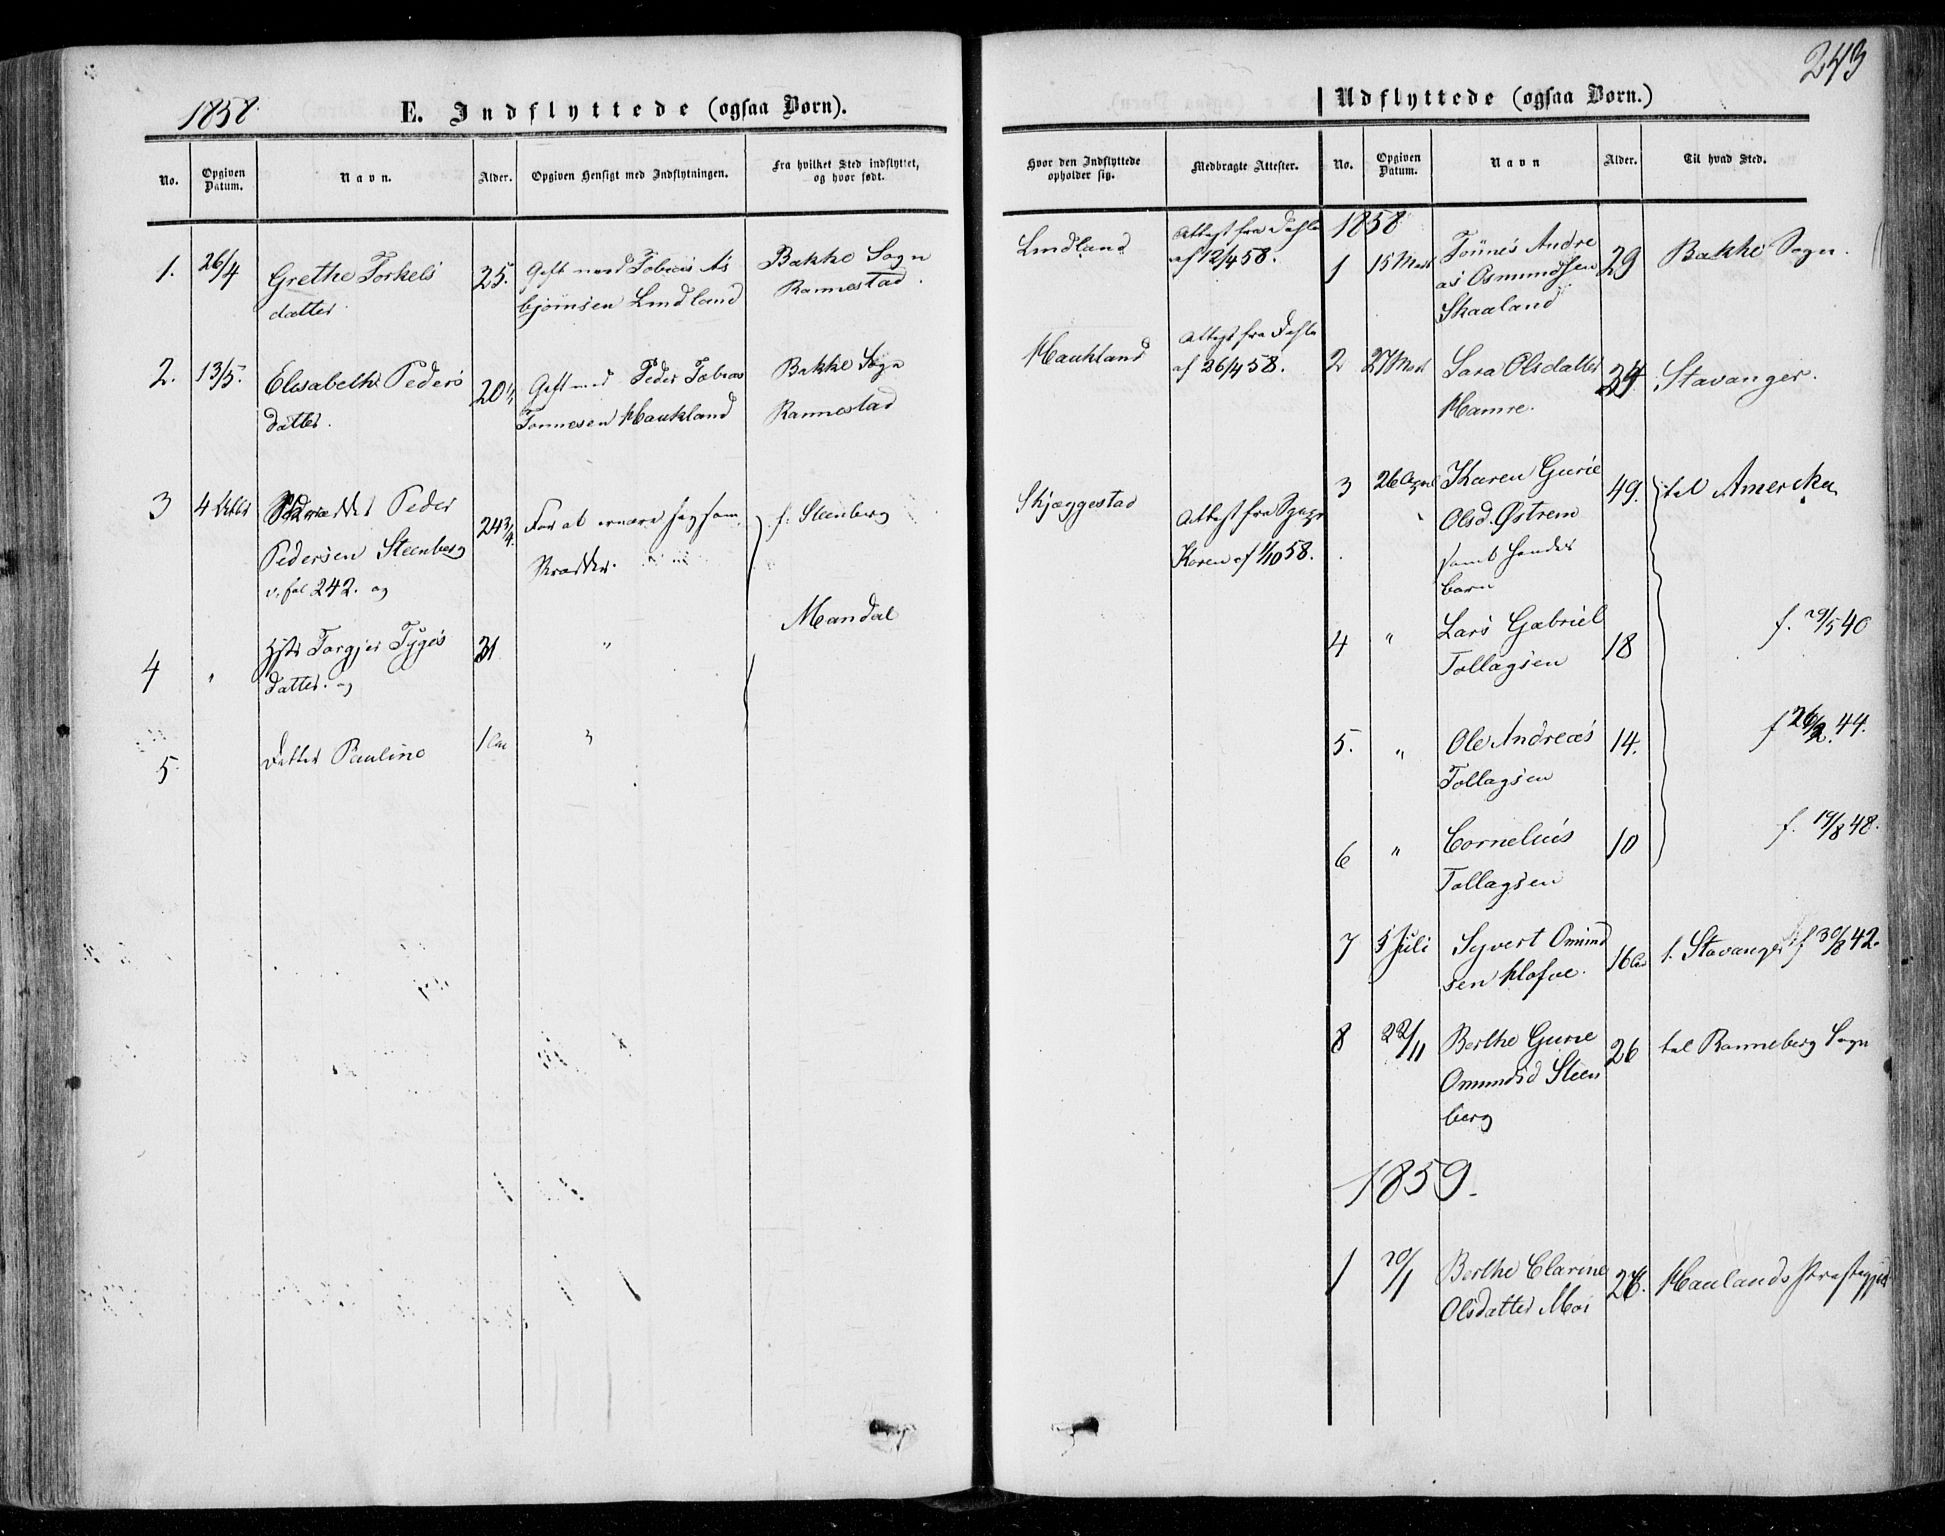 243
1858.
E. Indflyttede (ogsaa Børn).
No.
Opgiven Datum.
Navn.
Alder.
Opgiven Hensigt med Indflytningen.
Fra hvilket Sted indflyttet,
og hvor født.
Hvor den Indflyttede
opholder sig.
Medbragte Attester.
1. 26/4 Grethe Torkels 25. Gift med Tobias As Bakke Sogn Lindland Attest fra
datter bjørnsen Lindland Rannestad. af 12/4 58.
2. 13/5. Elisabeth Peders 20 Gift med Peder Tobias Bakke Sogn Haukland Attest fra
datter. Tønnesen Haukland Rannestad af 26/4 58.
3 4 Peder 24 3/4. For at ernære sig som f. Steenberg Skjæggestad Attest fra
Pedersen Steenberg Skrædder. af 1/10 58.
v. fol 242. og
4 " Torgjer Tyges 31 " Mandal
datter. og
5 datter Pauline 1 "
Udflyttede (ogsaa Børn.)
No.
Opgiven Datum.
Navn
Alder.
Til hvad Sted.
1858
1 15 Mart Tønnes Andre 29 Bakke Sogn.
as Osmundsen
Skaaland
2 27 Mart Sara Olsdatter 24. Stavanger.
Hamre.
3 26 April Karen Gurie 49. til Amerika
Olsd. Østrem
samt hendes
børn
4 " Lars Gabriel 18 f. 29/5 40
Tollagsen
5. " Ole Andreas 14. f 26/2. 44.
Tollagsen
6 " Cornelius 10 f. 19/8 48.
Tollagsen
7 5 Juli Syvert Omund 16 t. Stavanger f 30/8 42.
sen Klofve.
8 22/11 Berthe Gurie 26 til Ranneberg Sogn
Omundsd Steen
berg
1859.
1 20/1 Berthe Clarine 26. Haulands Præstegjeld
Olsdatter Moi